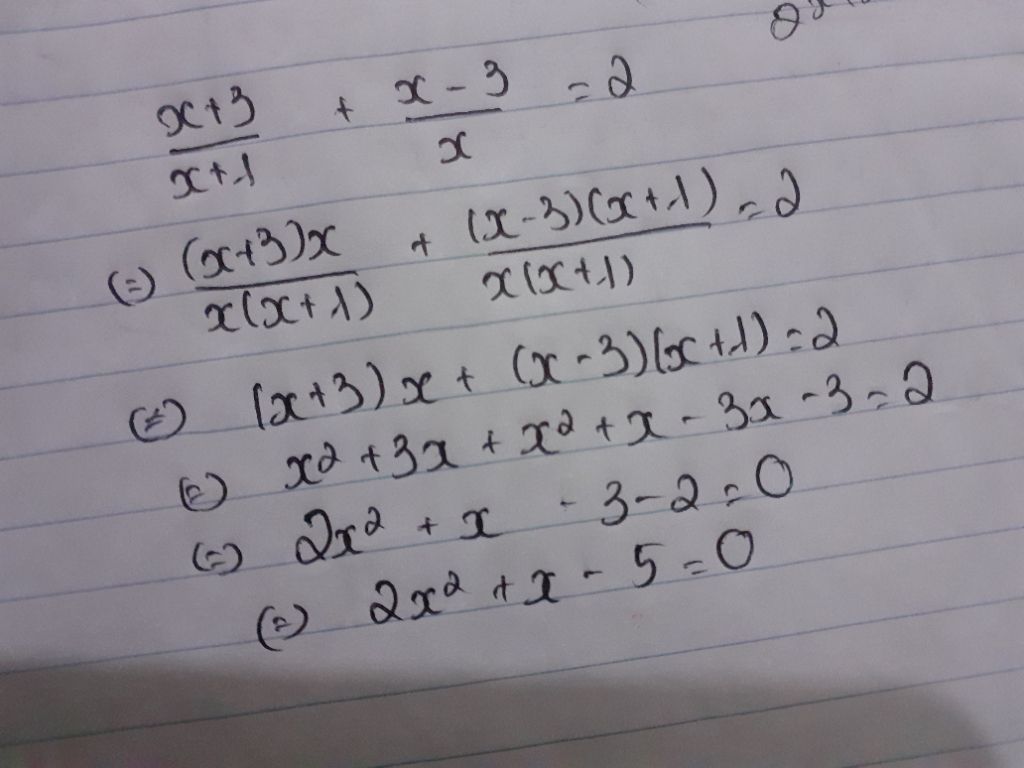 (x+3)/(x+1) + (x-3)/x = 2
(=) ((x+3)x)/(x(x+1)) + ((x-3)(x+1))/(x(x+1)) = 2
(=) (x+3)x + (x-3)(x+1) = 2
(=) x² + 3x + x² + x - 3x - 3 = 2
(=) 2x² + x - 3 - 2 = 0
(=) 2x² + x - 5 = 0